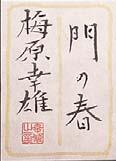 門の春
梅原幸雄